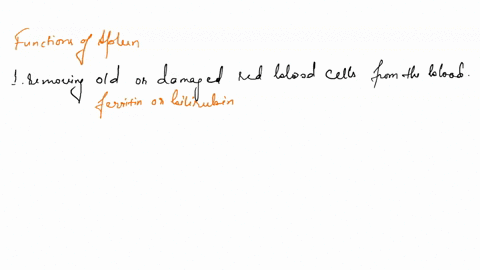 Functions of Spleen
1. Removing old or damaged red blood cells from the blood.
ferritin or bilirubin